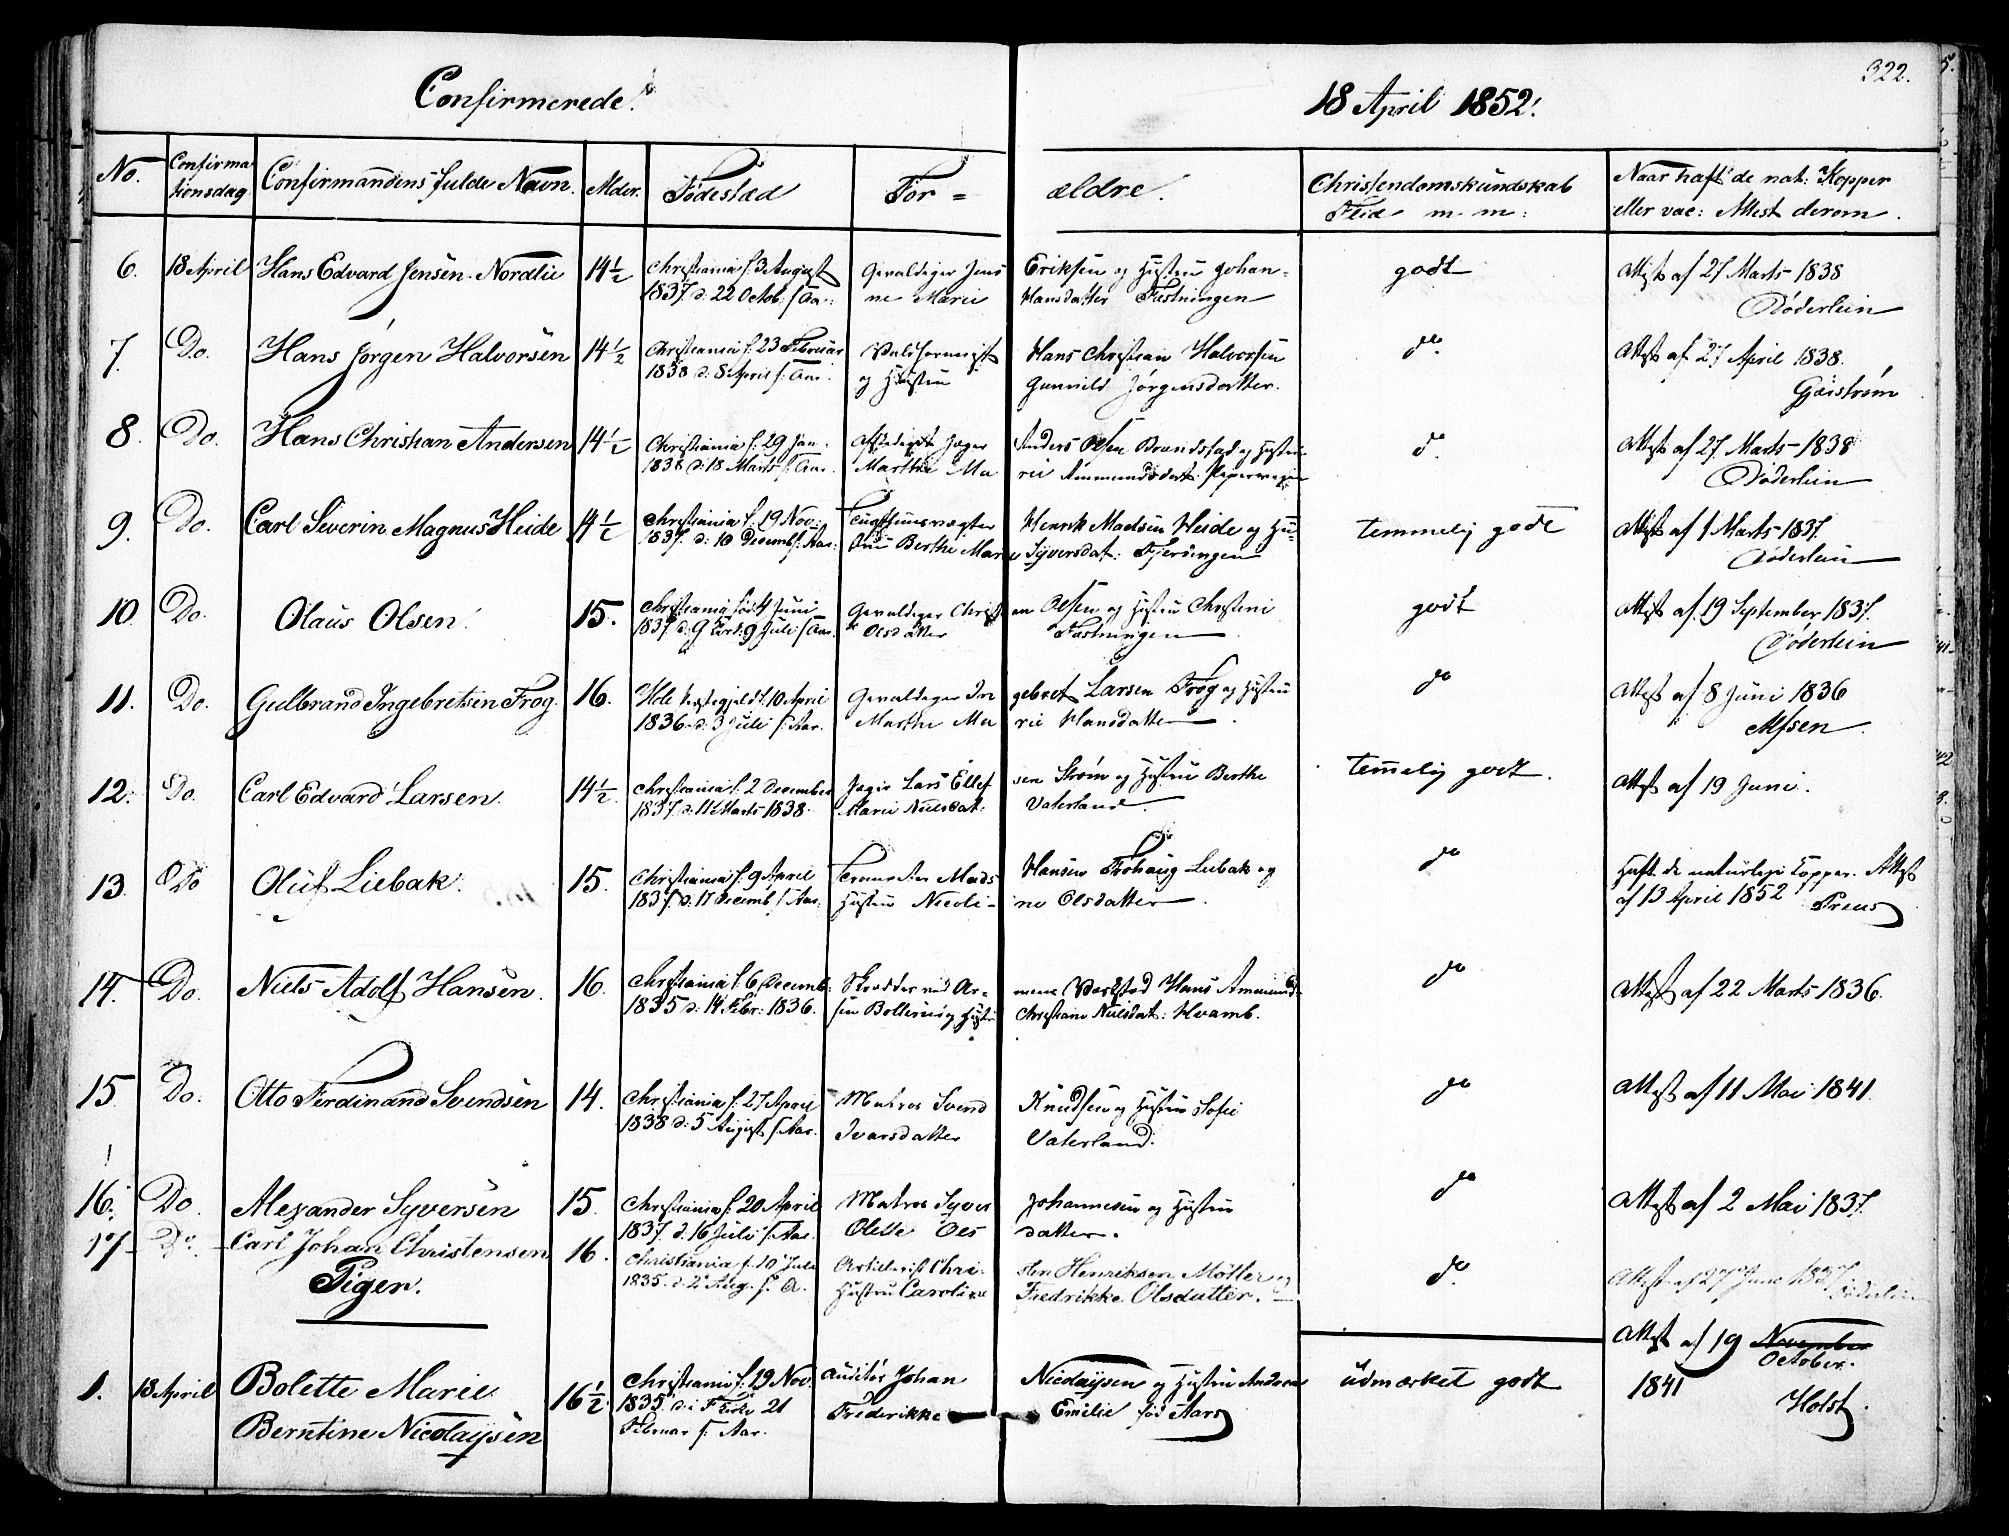 322.
Confirmerede.
18 April 1852.
No. Confirma Confirmandens fulde Navn. Alder. Födestæd For = ældre. Christendomskundskab Naar haft de nat: Kopper
tionsdag Flid m. m: eller vac: Attest derom.
6. 18 April Hans Edvard Jensen Nordlie 14 1/2 Christiania f. 3 August Gevaldiger Jens Eriksen og Hustru Johan= godt Attest af 27 Marts 1838
1837. d: 22 Octob: s: Aar: ne Marie Hansdatter Fæstningen Döderlein
7. Do. Hans Jørgen Halvorsen 14 1/2 Christiania f. 23 Februar Valdhornist Hans Christian Halvorsen do. Attest af 27 April 1838.
1838 d: 8 April s: Aar. og Hustru Gunnild Jørgensdatter. Gjörström
8. Do. Hans Christian Andersen 14 1/2 Christiania f. 29 Jan. Afskediget Jæger Anders Olsen Brandstad og Hustru do. Attest af 27 Marts 1838
1838 d: 18 Marts s: Aar. Marthe Ma rie Ammundsdat. Pipervigen Döderlein
9. Do. Carl Severin Magnus Heide 14 1/2 Christiania f. 19 Nov: Tugthuusvægter Henrik Madsen Heide og Hu= temmelig godt Attest af 1 Marts 1837.
1837. d: 10 Decemb s: Aar: stru Berthe Marie Syversdat: Fjerdingen Döderlein
10 Do. Olaus Olsen. 15. Christiania född 4 Juni Gevaldiger Christi an Olsen og Hustru Christeni godt Attest af 19 September 1837.
1837 d: 9 Juli s: Aar. Olsdatter Fæstningen Döderlein
11. Do. Gulbrand Ingebretsen Frog. 16. Hole Præstegjeld f. 10 April Gevaldiger In gebret Larsen Frog og Hustru do Attest af 8 Juni 1836
1836. d: 3 Juli s: Aar. Marthe Ma rie Hansdatter.
12. Do. Carl Edvard Larsen. 14 1/2. Christiania f. 2 December Jæger Lars Ellef sen Strøm og Hustru Berthe temmelig godt. Attest af 19 Juni.
1837. d: 11 Marts 1838. Marie Nielsdat: Vaterland.
13. Do Oluf Liebak. 15. Christiania f. 9 April Mads Hansen Frohaug Liebak og do Haft de naturlige Kopper. Attest
1837. d: 17 Decemb s: Aar. Hustru Nicoli- ne Olsdatter. af 13 April 1852 Preus
14. Do. Niels Adolf Hansen. 16. Christiania f. 6 Decemb: Skrædder ved Ar= meens Værksted Hans Ammund= do Attest af 22 Marts 1836.
1835 d: 14 Febr: 1836. sen og Hustru Christiane Nielsdat: Hvamb.
15 Do. Otto Ferdinand Svendsen 14. Christiania f. 27 April Matros Svend Knudsen og Hustru Sofie do Attest af 11 Mai 1841.
1838 d: 5 August s: Aar. Ivarsdatter Vaterland.
16. Do. Alexander Syversen 15. Christiania f. 20 April Matros Syver Johannesen og Hustru do Attest af 2 Mai 1837.
1837. d. 16 Juli s: Aar. Olette Ols datter.
17 Do. Carl Johan Christensen 16. Christiania f. 10 Juli Artillerist Chri- sten Henriksen Møller og do. Attest af 27 Juni 1837 Döderlein
1835. d. 2 Aug. s. A. Hustru Caroline Fredrikke Olsdatter.
Piger.
1. 18 April Bolette Marie 16 1/2 Christiania f. 19 Nov. Auditör Johan Nicolaysen og Hustru Andrea udmærket godt Attest af 19 November
October.
Berntine Nicolaysen 1835 d: i Kirke 21 Frederikke Emilie föd Aars 1841
Februar s. Aar. Holst.